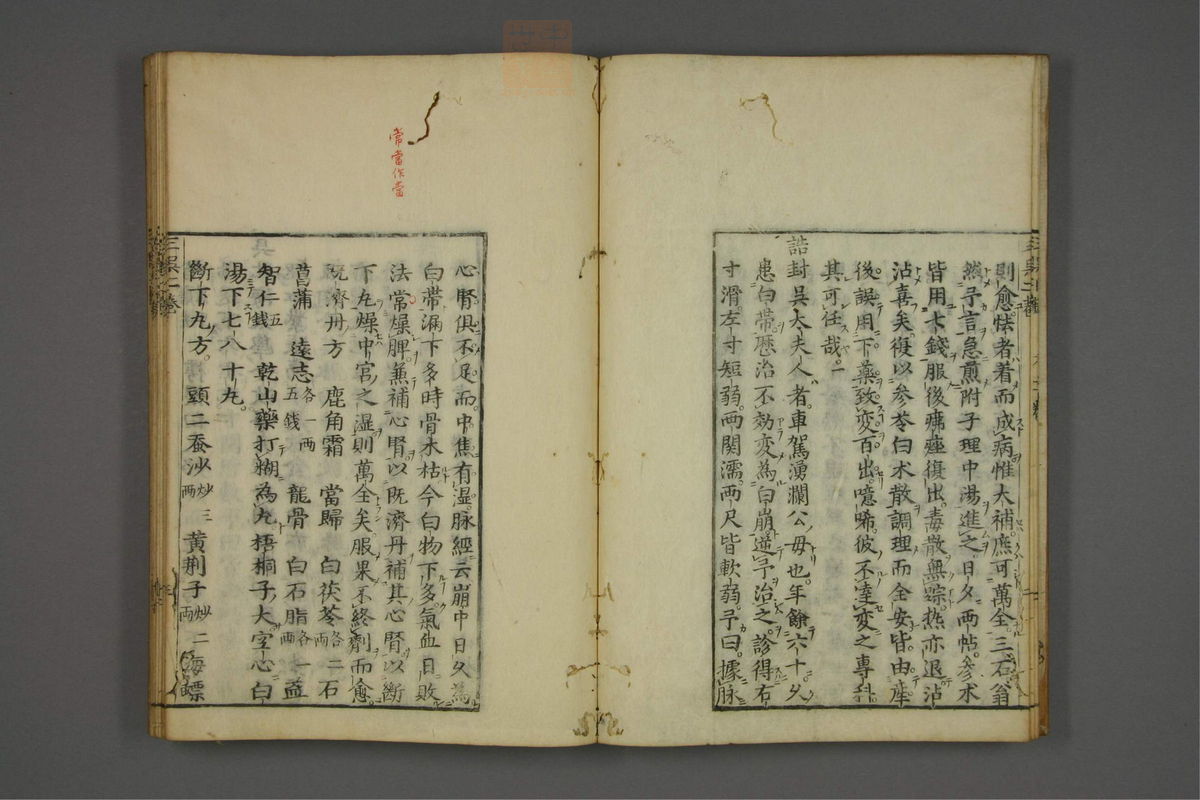 則愈怯者着而成病惟大補庶可萬全三石翁
然予言急煎附子理中湯進之日夂兩帖參术
皆用七錢服後痹痙復出毒散無踪热亦退沾
沾喜矣復以參苓白术散調理而全安皆由庠
後誤用下藥致変百出噫唏彼不達変之專科
其可任哉
誥封吳太夫人者車駕湧瀾公母也年餘六十夂
患白帶歷治不効変為白崩逆予治之診得右
寸滑左寸短弱兩関濡兩尺皆軟弱予曰據脉
常當作嘗
心腎俱不足而中焦有湿脉經云崩中日夂為
白帶漏下多時骨木枯今白物下多氣血日敗
法常燥脾兼補心腎以既濟丹補其心腎以断
下丸燥中宮之湿則萬全矣服果不終劑而愈
既濟丹方 鹿角霜 當歸 白茯苓各二兩 石
菖蒲 遠志各一兩五銭 龍骨 白石脂各一兩 益
智仁五銭 乾山藥打糊為丸梧桐子大空心白
湯下七八十丸
斷下丸方 頭二蚕沙炒三兩 黄荆子炒二兩 海螵
三吳一卷